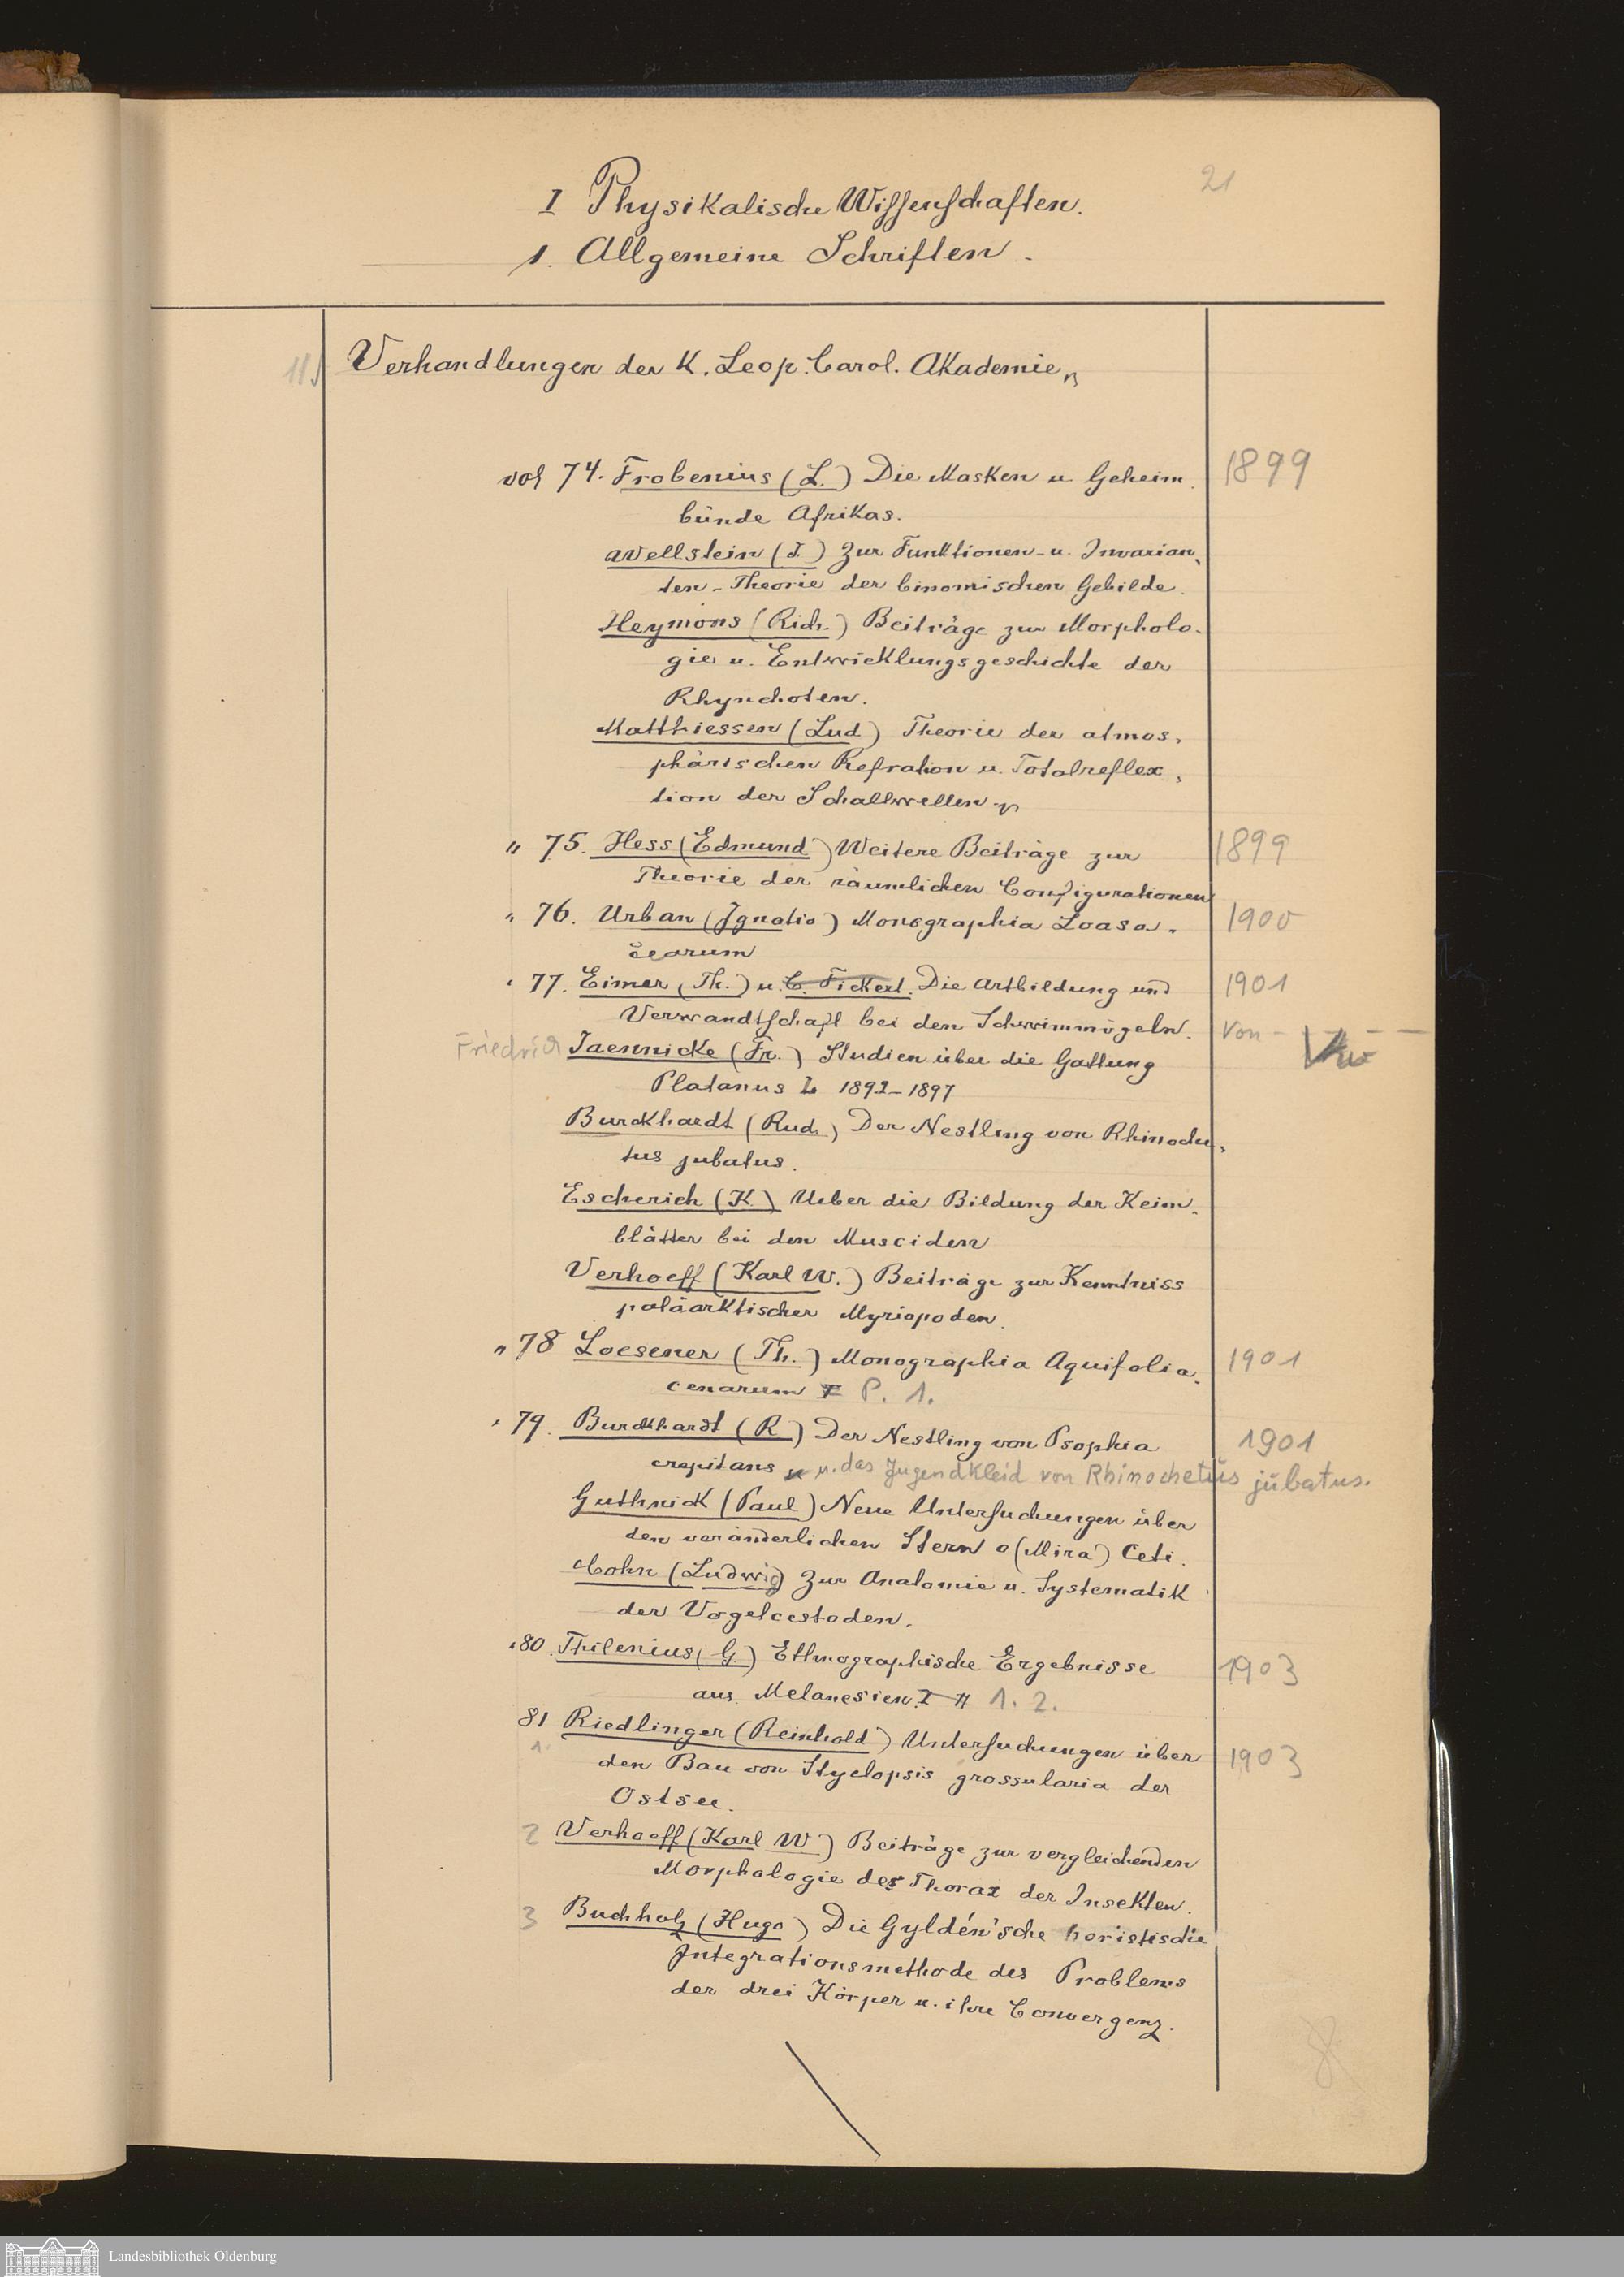 21
I Physikalische Wissenschaften.
1. Allgemeine Schriften.
Verhandlungen der K. Leop. Carol. Akademie
vol 74. Frobenius (L.) Die Masken u. Geheim- 1899
bünde Afrikas.
Wellstein (J.) Zur Funktionen- u. Invarian-
ten-Theorie der binomischen Gebilde.
Heymons (Rich.) Beiträge zur Morpholo-
gie u. Entwicklungsgeschichte der
Rhynchoten.
Matthiessen (Lud) Theorie der atmos-
phärischen Refration u. Totalreflex-
tion der Schallwellen
" 75. Hess (Edmund) Weitere Beiträge zur 1899
Theorie der räumlichen Configurationen
" 76. Urban (Ignatio) Monographia Loasa- 1900
cearum
" 77. Eimer (Th.) u. C. Fickert. Die Artbildung und 1901
Verwandtschaft bei den Schwimmvögeln. von -
Friedrich Jaennicke (Fr.) Studien über die Gattung
Platanus L 1892-1897
Burckhardt (Rud.) Der Nestling von Rhinoche-
tus jubatus.
Escherich (K.) Ueber die Bildung der Keim-
blätter bei den Musciden
Verhoeff (Karl W.) Beiträge zur Kenntniss
paläarktischer Myriopoden.
" 78 Loesener (Th.) Monographia Aquifolia- 1901
cearum I P. 1.
" 79. Burckhardt (R) Der Nestling von Psophia 1901
crepitans u. das Jugendkleid von Rhinochetus jubatus.
Guthnick (Paul) Neue Untersuchungen über
den veränderlichen Stern o (Mira) Ceti.
Cohn (Ludwig) Zur Anatomie u. Systematik
der Vogelcestoden.
" 80. Thilenius (G.) Ethnographische Ergebnisse 1903
aus Melanesien. I II 1. 2.
81 Riedlinger (Reinhold) Untersuchungen über 1903
1. den Bau von Styelopsis grossularia der
Ostsee.
2 Verhoeff (Karl W) Beiträge zur vergleichenden
Morphologie des Thorax der Insekten.
3 Buchholz (Hugo) Die Gyldén'sche horistische
Integrationsmethode des Problems
der drei Körper u. ihre Convergenz.
Landesbibliothek Oldenburg